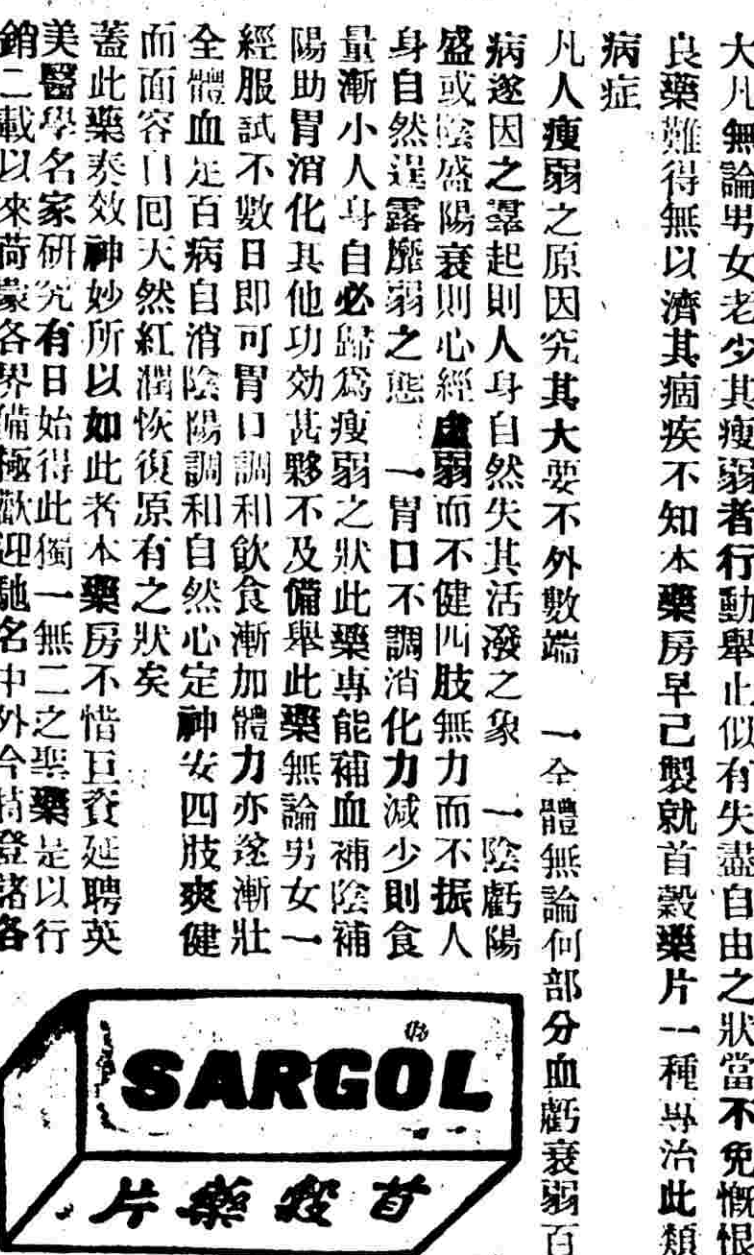 大凡無論男女老少其瘦弱者行動舉止似有失盡自由之狀當不免慨恨
良藥難得無以濟其痼疾不知本藥房早己製就首穀藥片一種專治此類
病症
凡人瘦弱之原因究其大要不外數端 一全體無論何部分血虧衰弱百
病遂因之羣起則人身自然失其活潑之象 一陰虧陽
盛或陰盛陽衰則心經虛弱而不健四肢無力而不振人
身自然逞露靡弱之態 一胃口不調消化力減少則食
量漸小人身自必歸爲瘦弱之狀此藥專能補血補陰補
陽助胃消化其他功効甚夥不及備舉此藥無論男女一
經服試不數日即可胃口調和飲食漸加體力亦遂漸壯
全體血足百病自消陰陽調和自然心定神安四肢爽健
而面容自回天然紅潤恢復原有之狀矣
蓋此藥奏效神妙所以如此者本藥房不惜巨資延聘英
美醫學名家研究有日始得此獨一無二之聖藥是以行
銷二載以來荷蒙各界備極歡迎馳名中外今特登諸各
SARGOL
片藥穀首